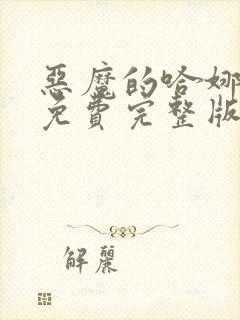 惡魔的哈娜
免費完整版
解麗